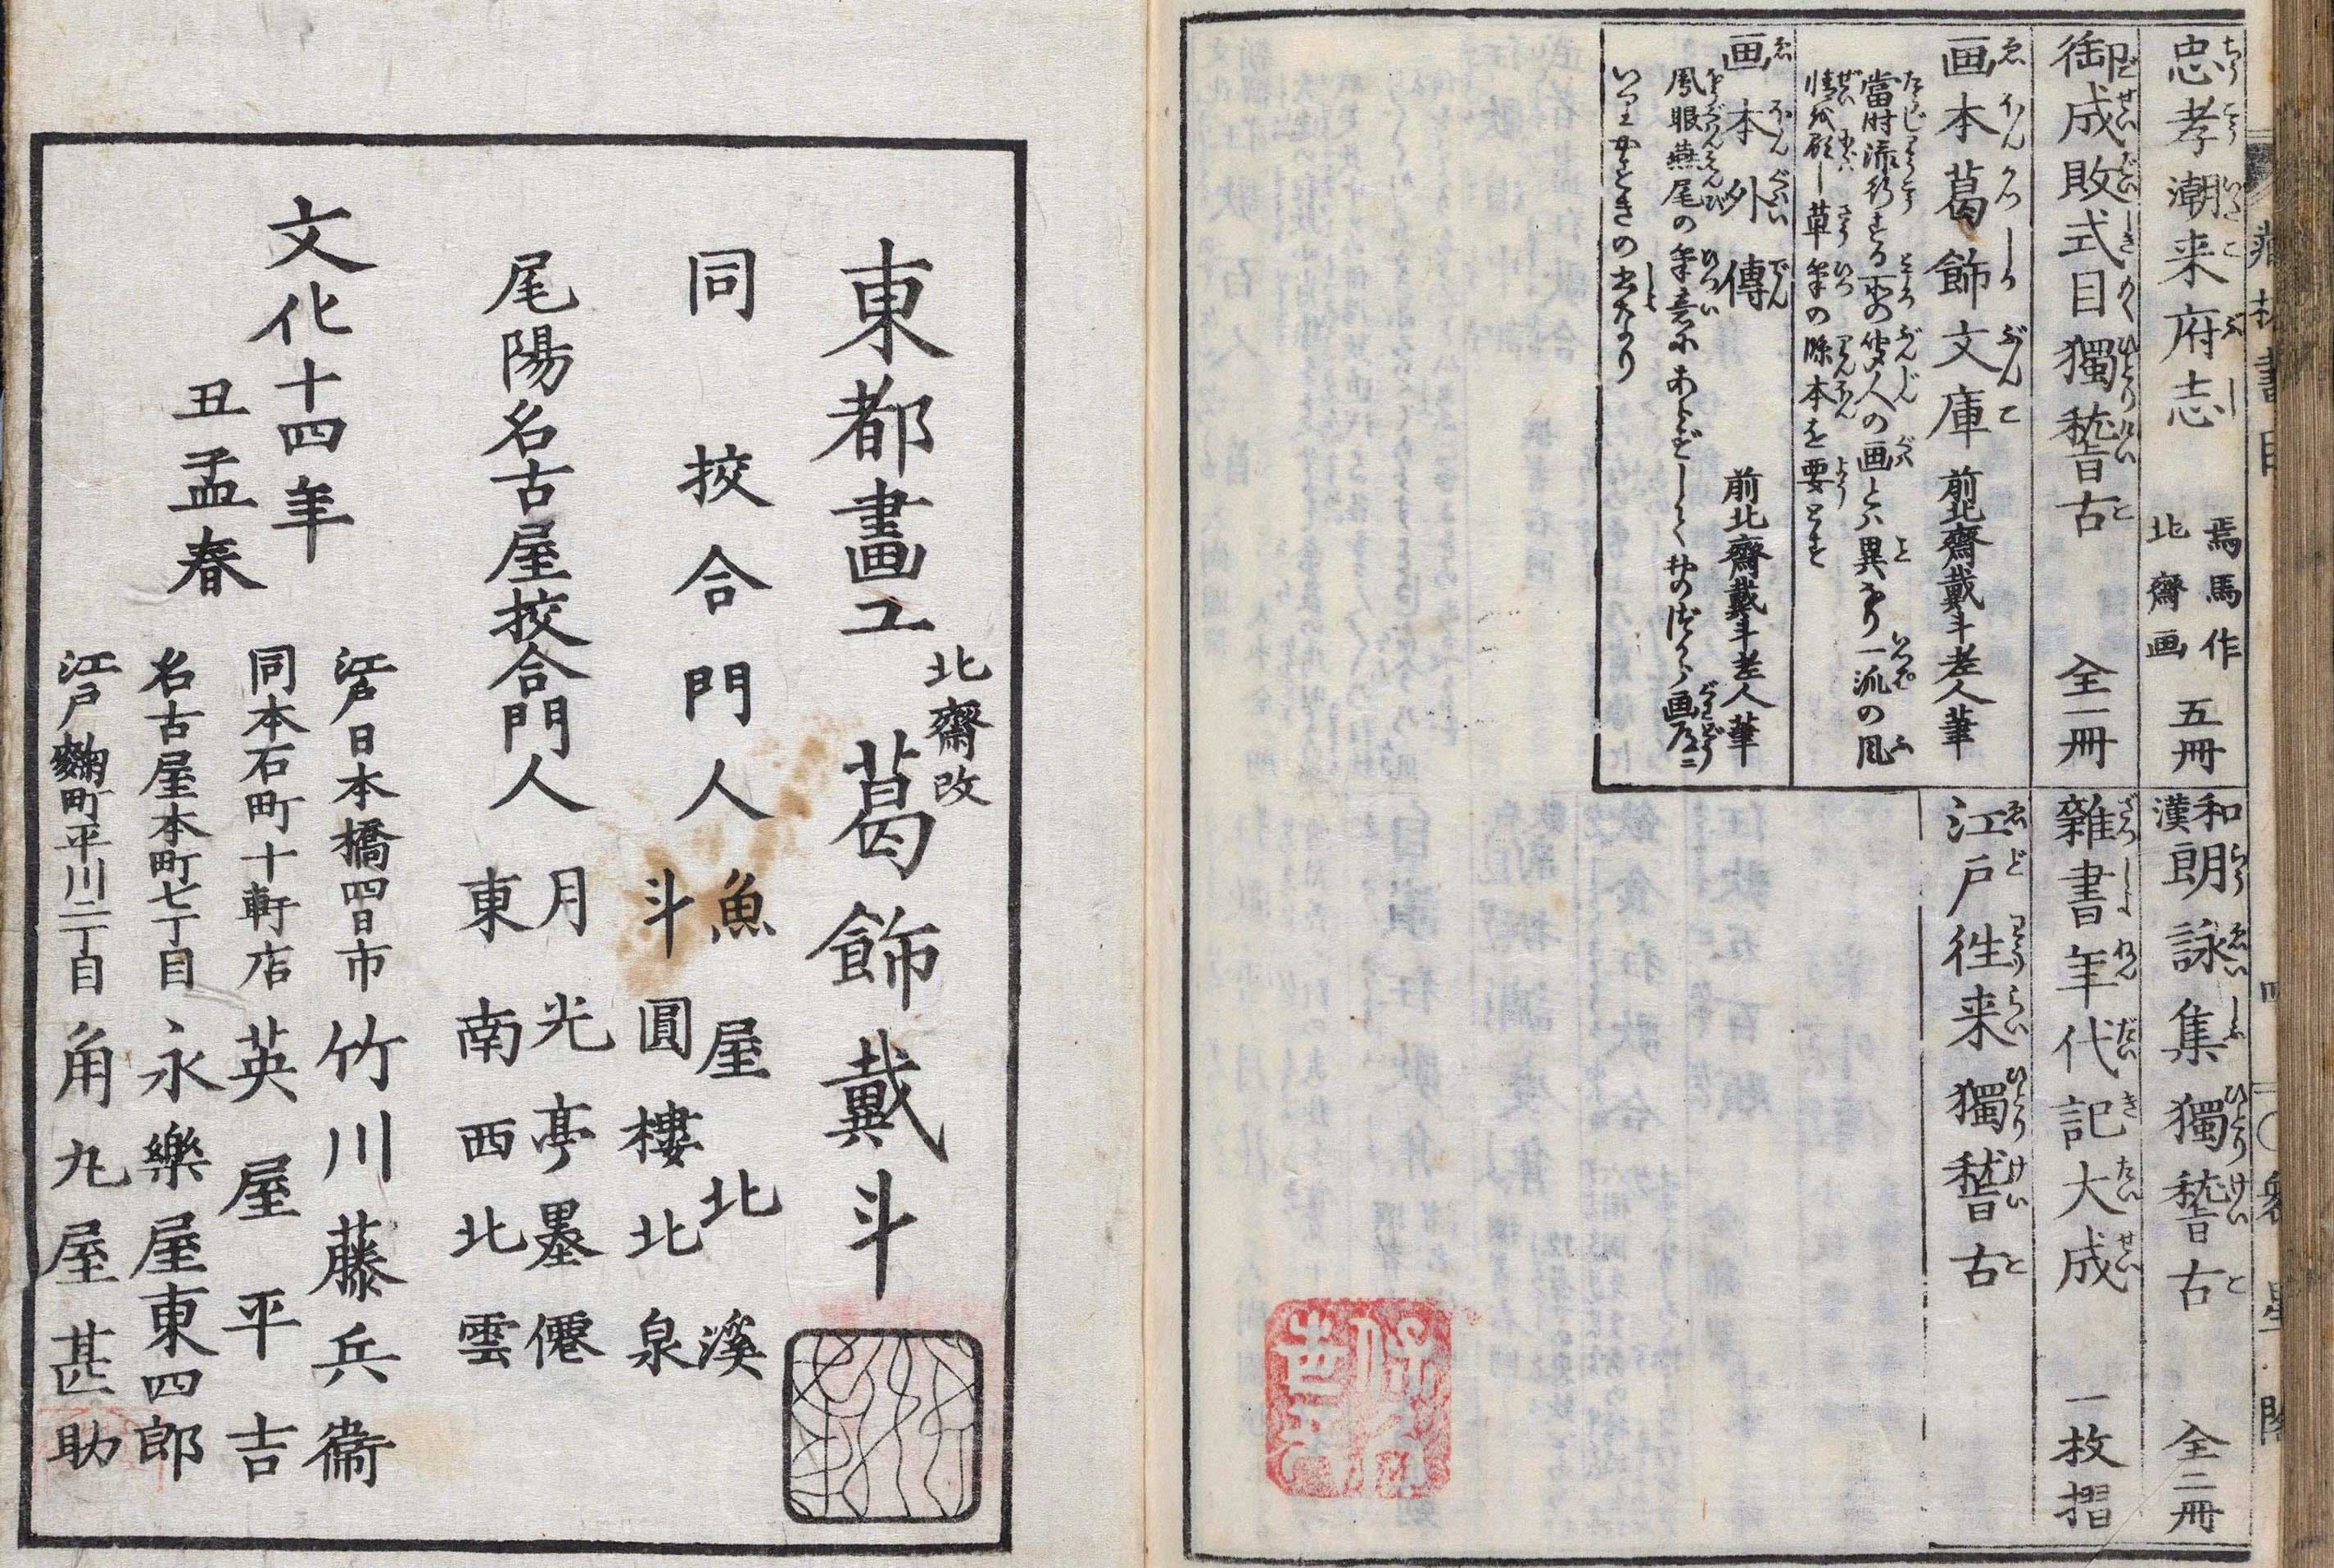 忠孝潮来府志 焉馬作 北齋画 五冊
御成敗式目獨稽古 全一冊
画本葛飾文庫 前北齋戴斗老人筆
當時流行する所の文人の画とハ異なり一流の風
情を顕し草筆の縁本を要とす
画本外傳 前北齋戴斗老人筆
鳳眼燕尾の筆意にあらずして
和漢朗詠集獨稽古 全二冊
雜書年代記大成 一枚摺
江戸往来獨稽古
東都畫工 北齋改 葛飾戴斗
同 挍合門人 魚屋北溪
斗圓樓北泉
尾陽名古屋挍合門人 月光亭墨僊
東南西北雲
文化十四年
丑孟春
江戸日本橋四日市 竹川藤兵衞
同本石町十軒店 英屋平吉
名古屋本町七丁目 永樂屋東四郎
江戸麹町平川二丁目 角丸屋甚助